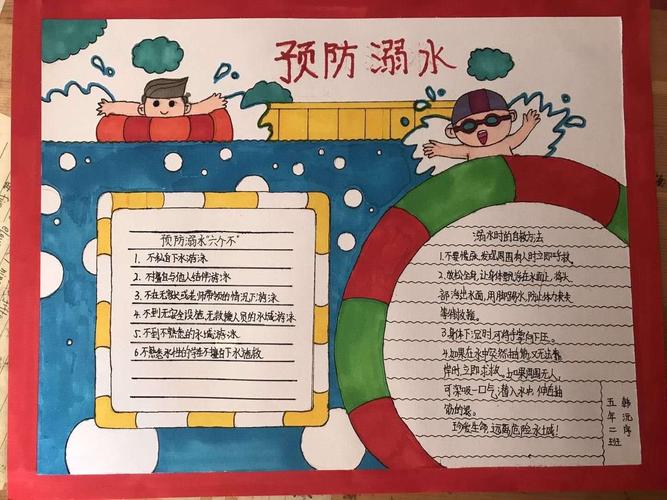 预防溺水
预防溺水"六个不"
1. 不私自下水游泳
2. 不擅自与他人结伴游泳
3. 不在无家长或老师带领的情况下游泳
4. 不到无安全设施、无救援人员的水域游泳
5. 不到不熟悉的水域游泳
6 不熟悉水性的学生不擅自下水施救
溺水时的自救方法
1. 不要慌张, 发现周围有人时立即呼救。
2. 放松全身, 让身体飘浮在水面上, 将头
部浮出水面, 用脚踢水, 防止体力丧失
等待救援。
3. 身体下沉时, 可将手掌向下压。
4. 如果在水中突然抽筋, 又无法靠
岸时, 立即求救。如果周围无人,
可深吸一口气, 潜入水中, 伸直抽
筋的腿。
珍爱生命, 远离危险水域!
五年二班
韩沅序